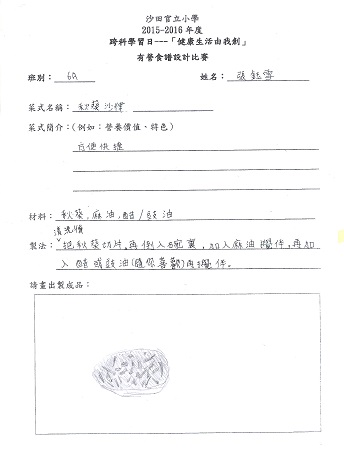 沙田官立小學
2015-2016年度
跨科學習日---「健康生活由我創」
有營食譜設計比賽
班別：6A 姓名：張鈺雯
菜式名稱：秋葵沙律
菜式簡介：(例如：營養價值、特色)
方便快捷
材料：秋葵,麻油,醋/豉油
清洗後
製法：把秋葵切片,再倒入碗裏,加入麻油攪伴,再加
入醋或豉油(隨你喜歡)再攪伴。
請畫出製成品：